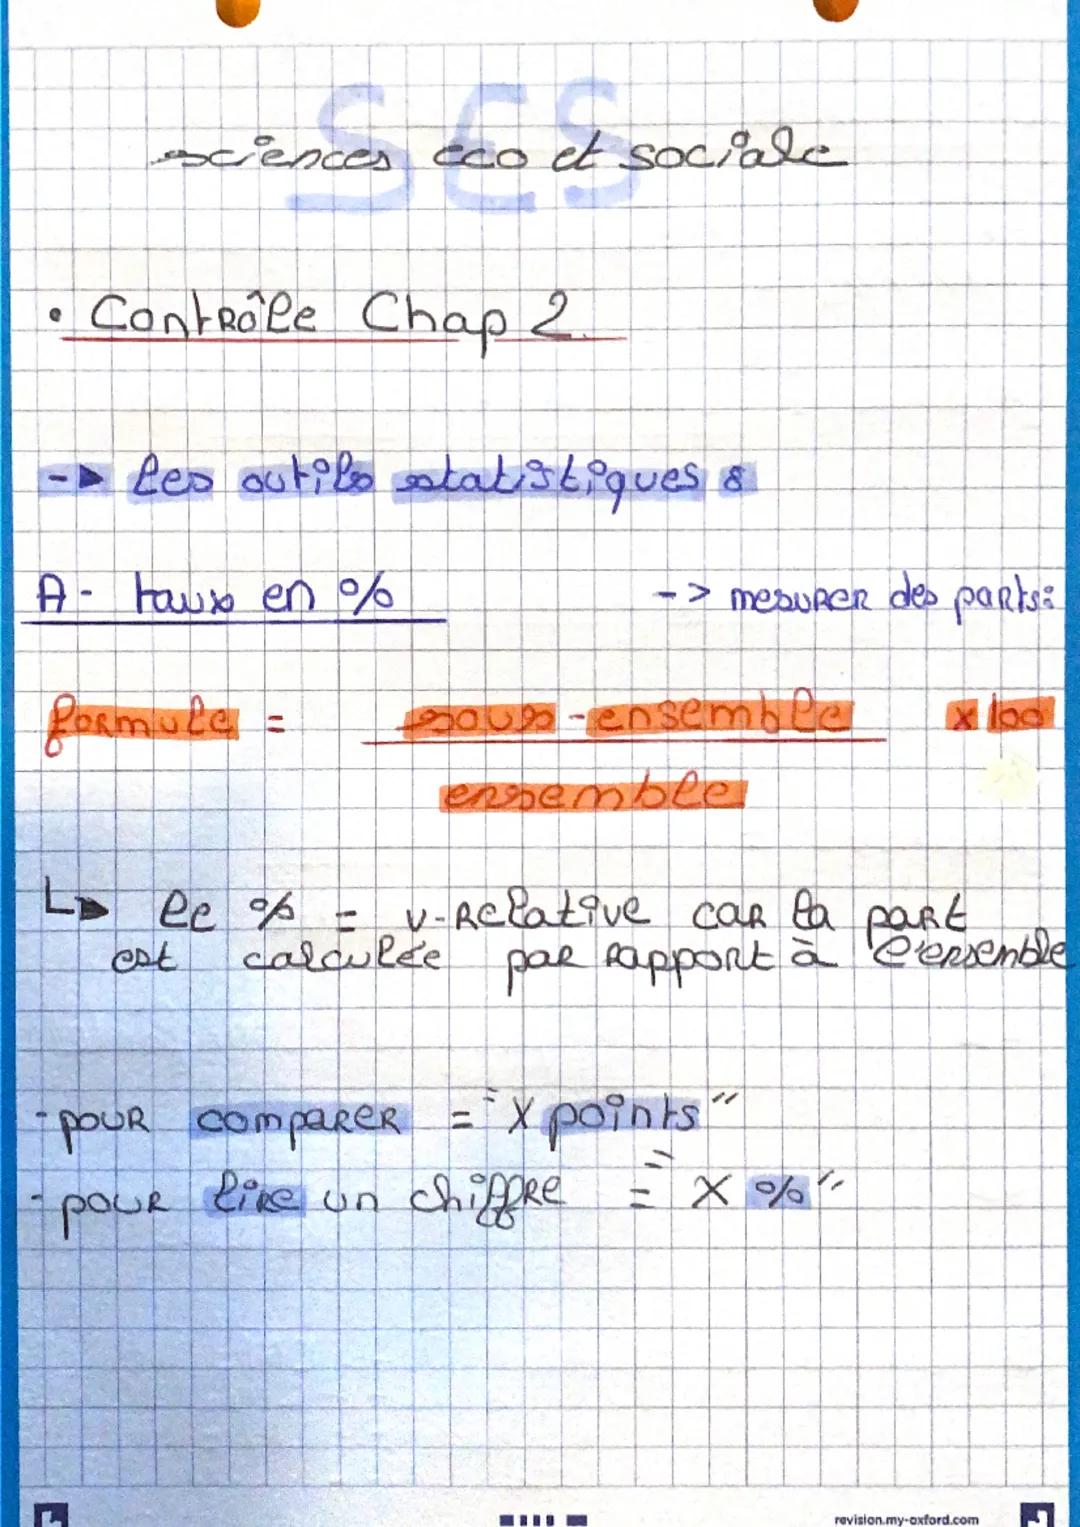 SES
sciences eco et sociale
• Contrôle Chap 2.
-> les outils statistiques :
A - taux en %
-> mesurer des parts:
formule = sous-ensemble x 100
ensemble
↳ le % = v-relative car la part
est calculée par rapport à l'ensemble
- pour comparer = "X points"
- pour lire un chiffre = "X %"
revision.my-oxford.com